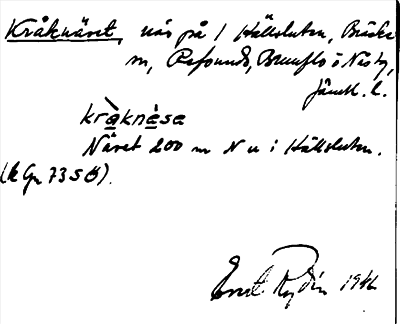 Kråknäset, näs på / Hällsluten, Bräcke
m, Refsunds, Brunflo o Näs tg,
Jämtl. l.
kràknése
Näset 200 m N u i Hällsluten.
(k Gn 73 SÖ).
Ernst Rydin 1946